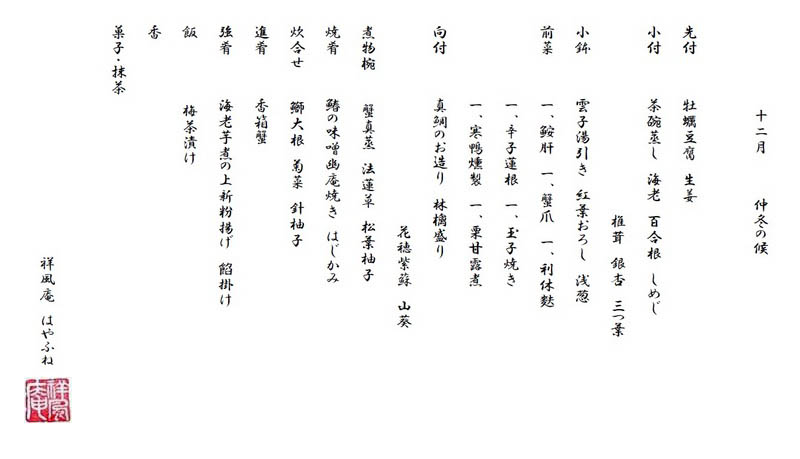 十二月　仲冬の候
先付　牡蠣豆腐　生姜
小付　茶碗蒸し　海老　百合根　しめじ
椎茸　銀杏　三つ葉
小鉢　雲子湯引き　紅葉おろし　浅葱
前菜　一、鮟肝　一、蟹爪　一、利休麩
一、辛子蓮根　一、玉子焼き
一、寒鴨燻製　一、栗甘露煮
向付　真鯛のお造り　林檎盛り
花穂紫蘇　山葵
煮物椀　蟹真蒸　法蓮草　松葉柚子
焼肴　鰆の味噌幽庵焼き　はじかみ
炊合せ　鰤大根　菊菜　針柚子
進肴　香箱蟹
強肴　海老芋煮の上新粉揚げ　餡掛け
飯　梅茶漬け
香
菓子・抹茶
祥風庵　はやふね
祥風庵